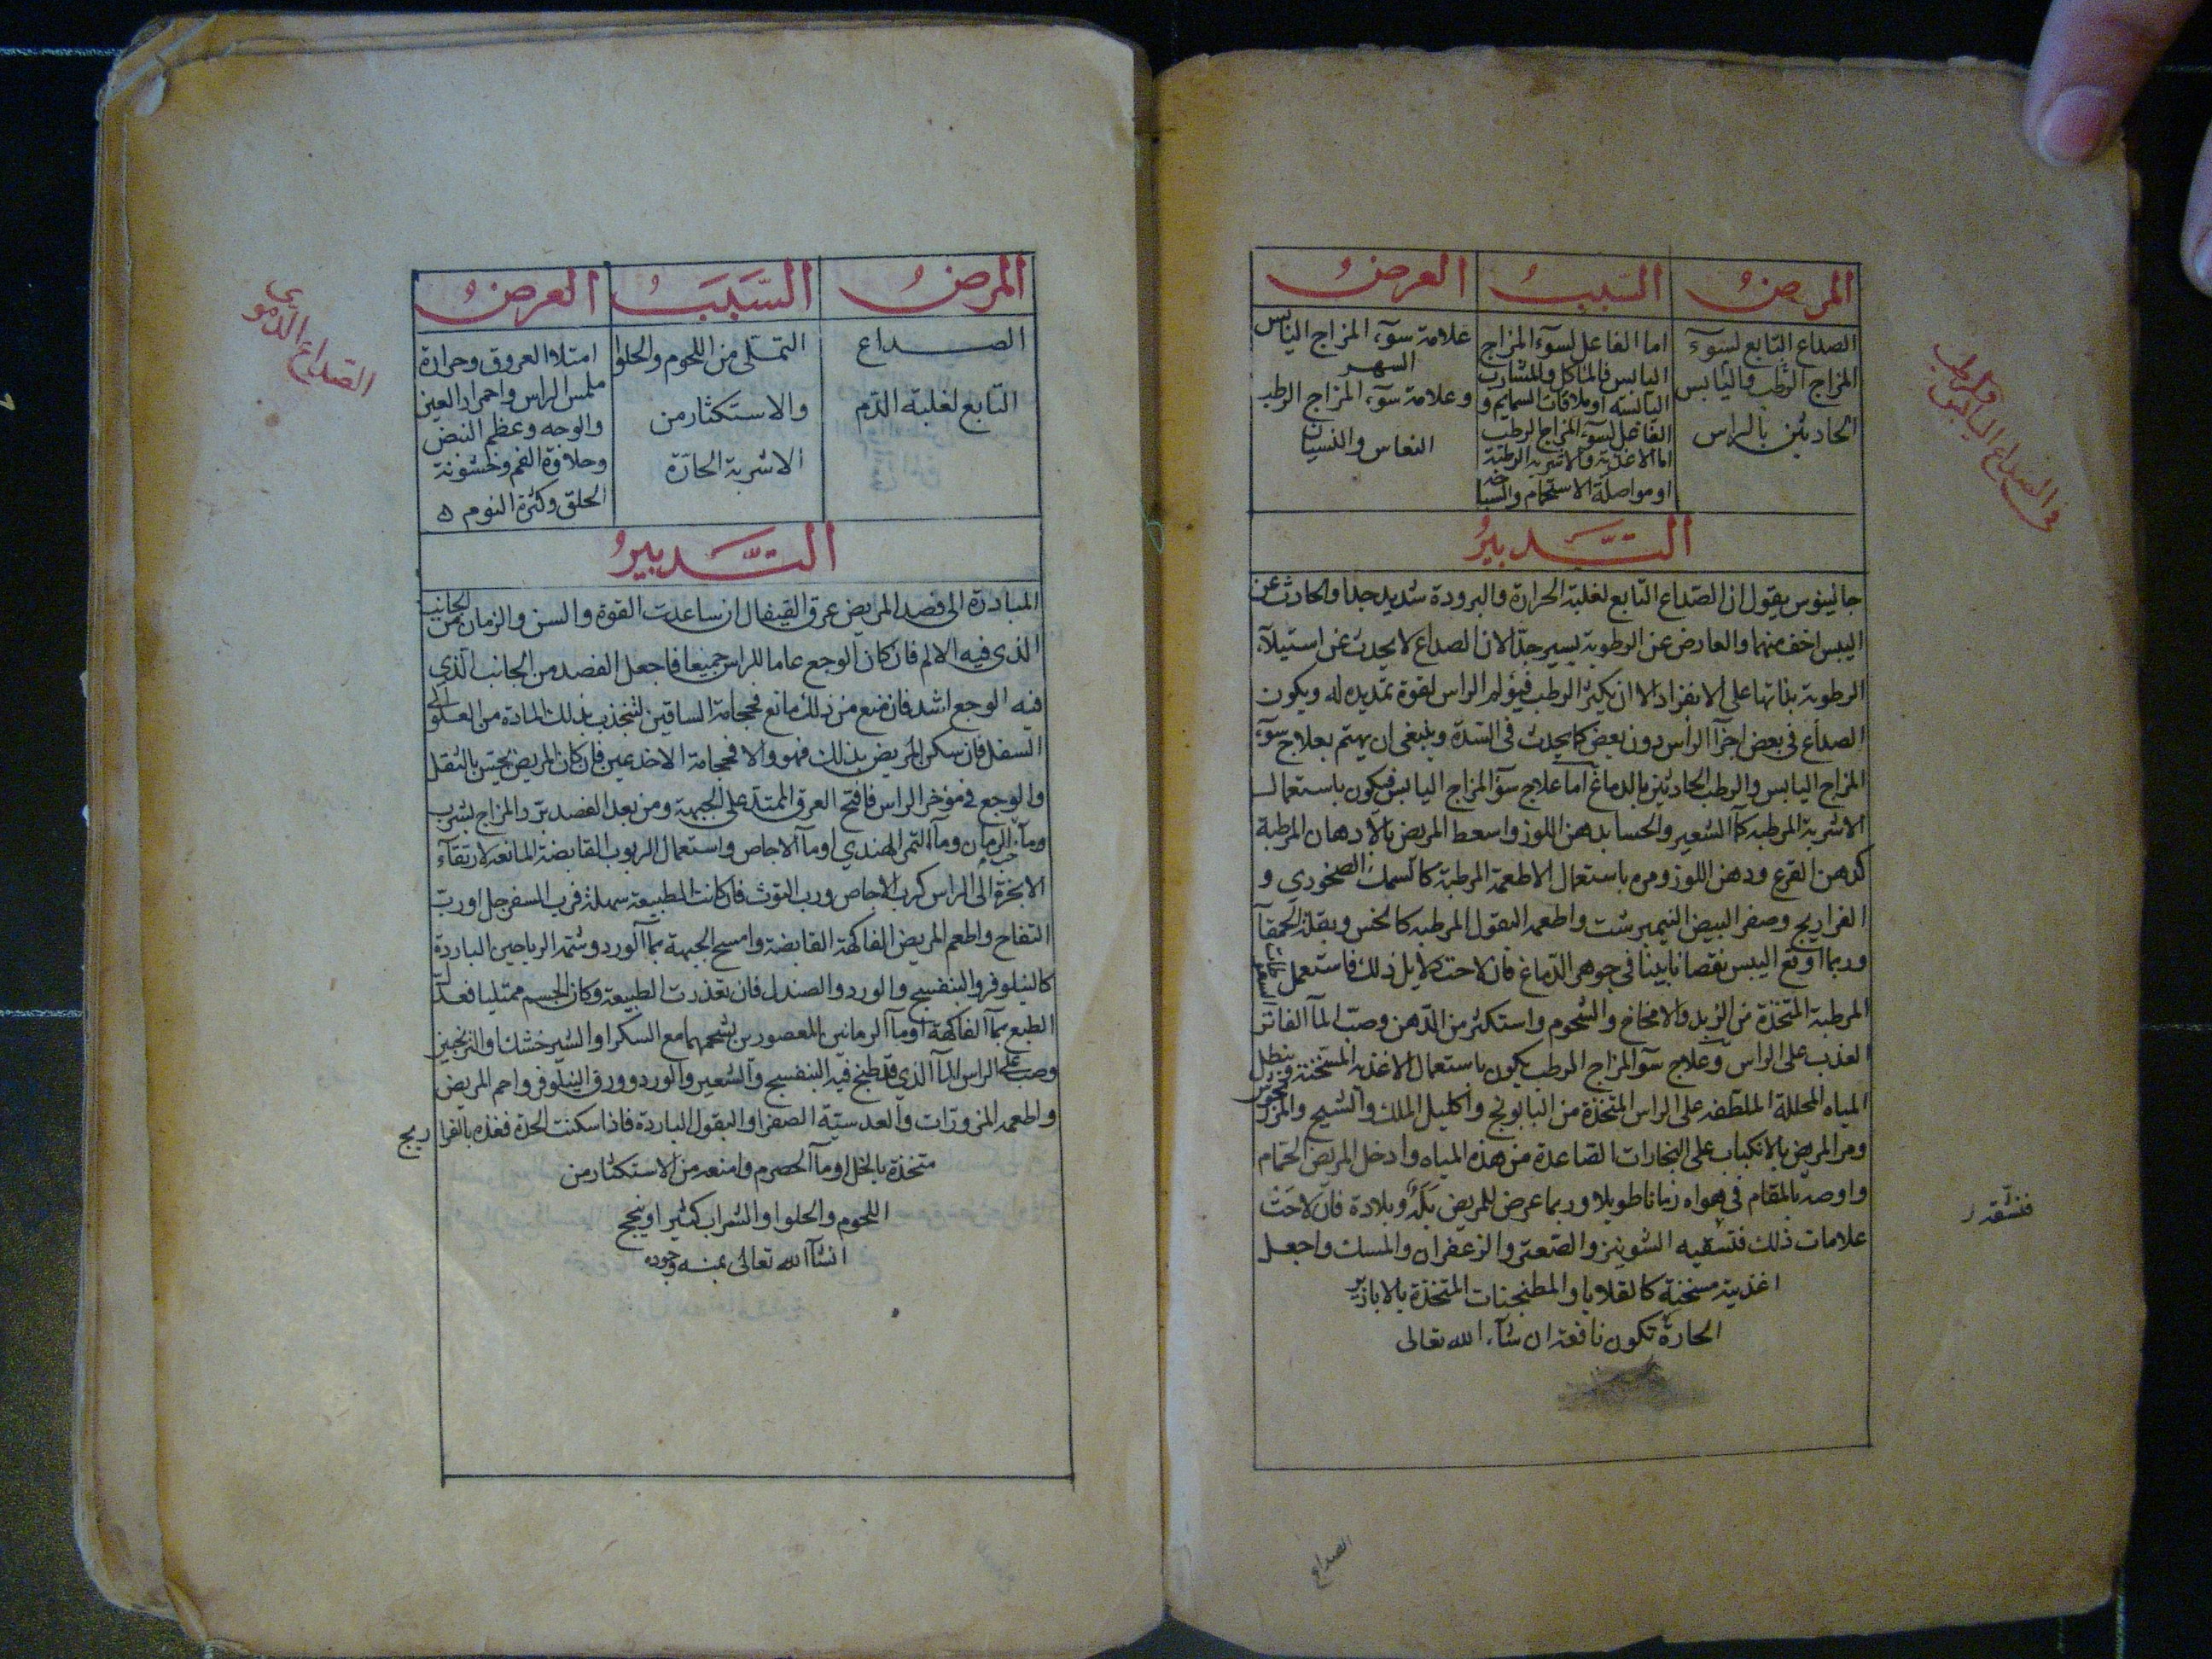 في الصداع اليابس
والرطب
المرض
السبب
العرض
الصداع التابع لسوء
المزاج الرطب واليابس
الحادثين بالراس
اما الفاعل لسوء المزاج
اليابس فالمآكل والمشارب
اليابسة او ملاقات السمايم و
الفاعل لسوء المزاج الرطب
اما الاغذية والاشربة الرطبة
او مواصلة الاستحمام والسباحة
علامة سوء المزاج اليابس
السهر
وعلامة سوء المزاج الرطب
النعاس والنسيان
التدبير
جالينوس يقول ان الصداع التابع لغلبة الحرارة والبرودة شديد جدا والحادث عن
اليبس اخف منهما والعارض عن الرطوبة يسير جدا لان الصداع لا يحدث عن استيلآء
الرطوبة بذاتها على الانفراد الا ان يكثر الرطب فيؤلم الراس لقوة تمديده له ويكون
الصداع في بعض اجزآ الراس دون بعض كما يحدث في السدة وينبغي ان يهتم بعلاج سوء
المزاج اليابس والرطب الحادثين بالدماغ اما علاج سؤ المزاج اليابس فيكون باستعمال
الاشربة المرطبه كمآ الشعير والحسا بدهن اللوز واسعط المريض بالادهان المرطبة
كدهن القرع ودهن اللوز ومره باستعمال الاطعمة المرطبة كالسمك الصخوري و
الفراريج وصفر البيض النيمبرشت واطعمه البقول المرطبه كالخس وبقلة الحمقآ
وربما اوقع اليبس نقصانا بينا في جوهر الدماغ فان لاحت دلايل ذلك فاستعمل
المرطبة المتخذة من الزبد والامخاخ والشحوم واستكثر من الدهن وصب المآ الفاتر
العذب على الراس وعلاج سؤ المزاج المرطب يكون باستعمال الاغذيه المسخنة وتنطيل
المياه المحللة الملطفه على الراس المتخذة من البابونج واكليل الملك والشيح والمرزنجوش
ومر المريض بالانكباب على البخارات الصاعدة من هذه المياه وادخل المريض الحمام
واوصه بالمقام في هواه زمانا طويلا وربما عرض للمريض بله وبلادة فان لاحت
علامات ذلك فتسقيه الشونيز والصعتر والزعفران والمسك واجعل
اغذيته مسخنة كالقلايا والمطنجنات المتخذة بالابازير
الحارة تكون نافعة ان شآء الله تعالى
الصداع
الصداع الدموي
المرض
السبب
العرض
الصداع
التابع لغلبة الدم
التملي من اللحوم والحلوا
والاستكثار من
الاشربة الحارة
امتلا العروق وحرارة
ملمس الراس واحمرار العين
والوجه وعظم النبض
وحلاوة الفم وخشونة
الحلق وكثرة النوم
التدبير
المبادرة الى فصد المريض عرق القيفال ان ساعدت القوة والسن والزمان من الجانب
الذي فيه الالم فان كان الوجع عاما للراس جميعا فاجعل الفصد من الجانب الذي
فيه الوجع اشد فان منع من ذلك مانع فحجامة الساقين لتنجذب بذلك المادة من العلو الى
السفل فان سكن المريض بذلك فهو والا فحجامة الاخدعين فان كان المريض يحس بالثقل
والوجع في مؤخر الراس فافتح العرق الممتد على الجبهة ومن بعد الفصد برد المزاج بشرب
ومآ الرمان ومآ التمر الهندي او مآ الاجاص واستعمال الربوب القابضة المانعة لارتقآء
الابخرة الى الراس كرب الاجاص ورب التوث فان كانت الطبيعة سهلة فرب السفرجل او رب
التفاح واطعم المريض الفاكهة القابضة وامسح الجبهة بمآ الورد وشمه الرياحين الباردة
كالنيلوفر والبنفسج والورد والصندل فان تعذرت الطبيعة وكان الجسم ممتليا فعدل
الطبع بمآ الفاكهة او مآ الرمانين المعصورين بشحمهما مع السكر او الشيرخشك والترنجبين
وصب على الراس المآ الذي قد طبخ فيه البنفسج والشعير والورد وورق النيلوفر واحم المريض
واطعمه المزورات والعدسية الصفرا والبقول الباردة فاذا سكنت الحدة فغذه بالفراريج
متخذة بالخل او مآ الحصرم وامنعه من الاستكثار من
اللحوم والحلوا والشراب كثيرا وينجح
انشآ الله تعالى بمنه وجوده